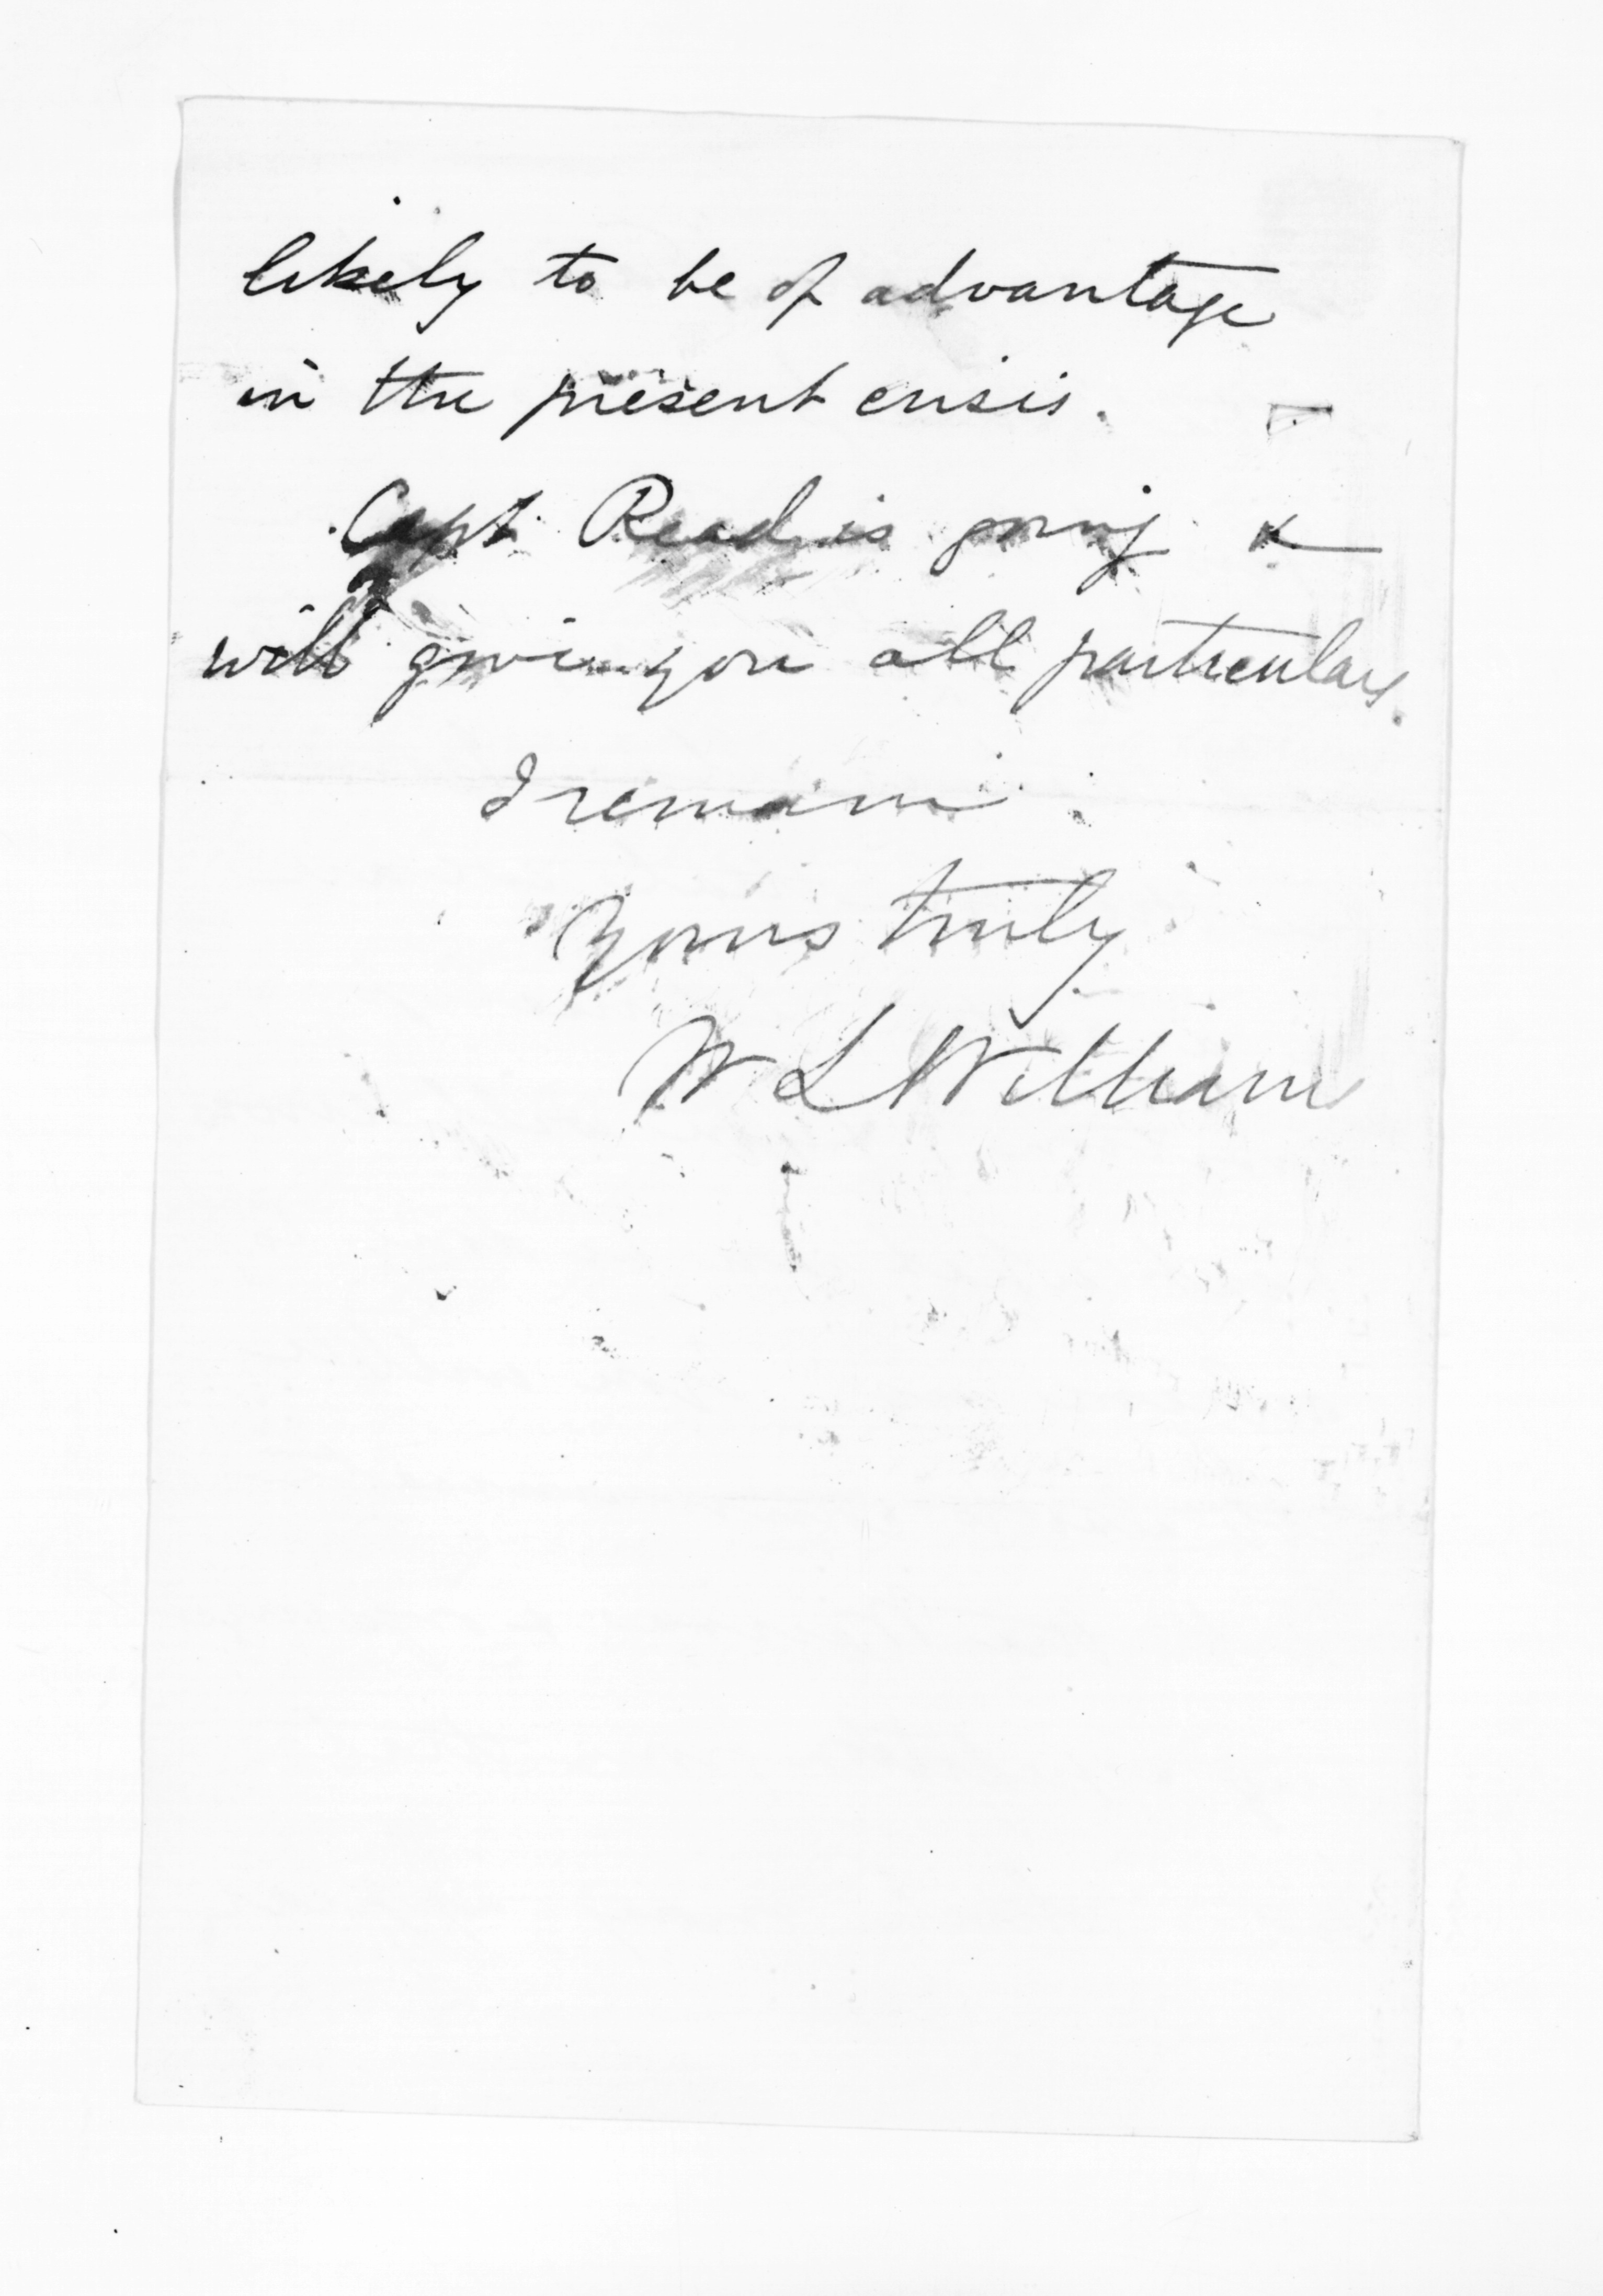 likely to be of advantage
in the present crisis.
Capt. Read is going &
will give you all particulars.
I remain
Yours truly
W L Williams